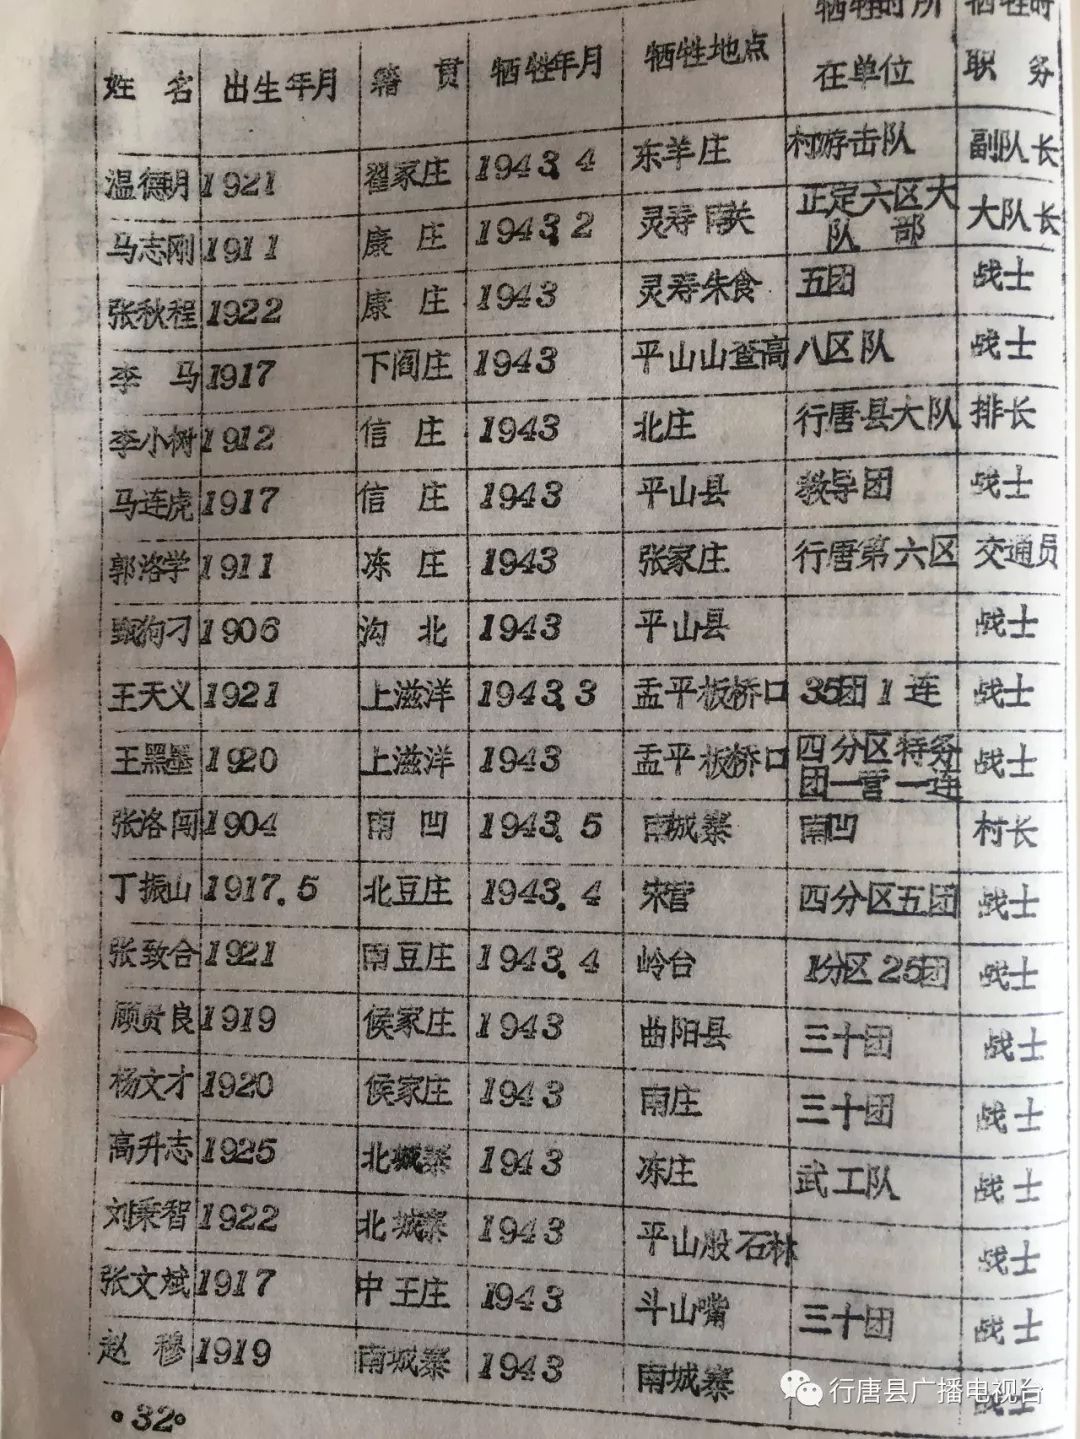 姓名 出生年月 籍贯 牺牲年月 牺牲地点 牺牲时所在单位 牺牲时职务
温德明 1921 翟家庄 1943.4 东羊庄 村游击队 副队长
马志刚 1911 康庄 1943.2 灵寿南关 正定六区大队部 大队长
张秋程 1922 康庄 1943 灵寿朱食 五团 战士
李马 1917 下阎庄 1943 平山山查高 八区队 战士
李小树 1912 信庄 1943 北庄 行唐县大队 排长
马连虎 1917 信庄 1943 平山县 教导团 战士
郭洛学 1911 冻庄 1943 张家庄 行唐第六区 交通员
甄狗刁 1906 沟北 1943 平山县 战士
王天义 1921 上滋洋 1943.3 孟平板桥口 35团1连 战士
王黑墨 1920 上滋洋 1943 孟平板桥口 四分区特务团一营一连 战士
张洛闯 1904 南凹 1943.5 南城寨 南凹 村长
丁振山 1917.5 北豆庄 1943.4 宋营 四分区五团 战士
张致合 1921 南豆庄 1943.4 岭台 1分区25团 战士
顾贵良 1919 侯家庄 1943 曲阳县 三十团 战士
杨文才 1920 侯家庄 1943 南庄 三十团 战士
高升志 1925 北城寨 1943 冻庄 武工队 战士
刘秉智 1922 北城寨 1943 平山般石林 战士
张文斌 1917 中王庄 1943 斗山嘴 三十团 战士
赵穆 1919 南城寨 1943 南城寨 战士
·32·
行唐县广播电视台